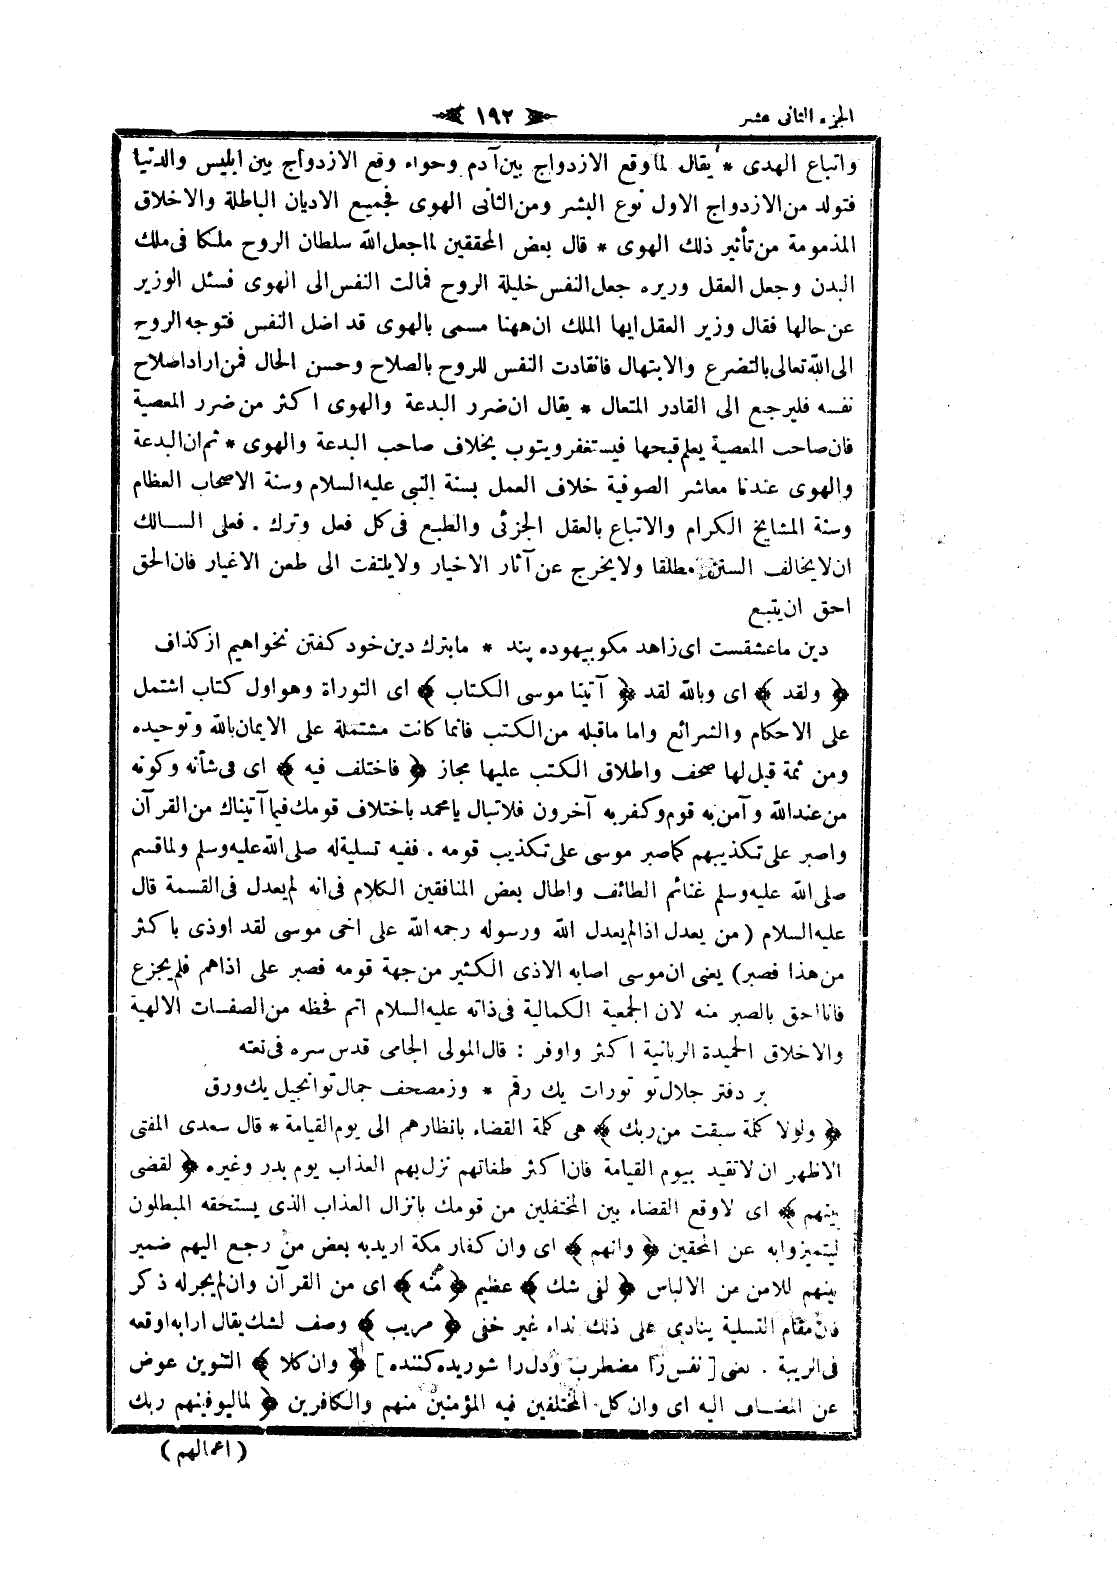 الجزء الثانى عشر
١٩٢
واتباع الهدى * يقال لما وقع الازدواج بين آدم وحواء وقع الازدواج بين ابليس والدنيا
فتولد من الازدواج الاول نوع البشر ومن الثانى الهوى فجميع الاديان الباطلة والاخلاق
المذمومة من تأثير ذلك الهوى * قال بعض المحققين لما جعل الله سلطان الروح ملكا فى ملك
البدن وجعل العقل وزيره جعل النفس خليلة الروح فمالت النفس الى الهوى فسئل الوزير
عن حالها فقال وزير العقل ايها الملك ان ههنا مسمى بالهوى قد اضل النفس فتوجه الروح
الى الله تعالى بالتضرع والابتهال فانقادت النفس للروح بالصلاح وحسن الحال فمن اراد اصلاح
نفسه فليرجع الى القادر المتعال * يقال ان ضرر البدعة والهوى اكثر من ضرر المعصية
فان صاحب المعصية يعلم قبحها فيستغفر ويتوب بخلاف صاحب البدعة والهوى * ثم ان البدعة
والهوى عندنا معاشر الصوفية خلاف العمل بسنة النبى عليه السلام وسنة الاصحاب العظام
وسنة المشايخ الكرام والاتباع بالعقل الجزئى والطبع فى كل فعل وترك . فعلى السالك
ان لا يخالف السنن مطلقا ولا يخرج عن آثار الاخيار ولا يلتفت الى طعن الاغيار فان الحق
احق ان يتبع
دين ما عشقست اى زاهد مكو بيهوده پند * ما بترك دين خود كفتن نخواهيم از كذاف
﴿ ولقد ﴾ اى وبالله لقد ﴿ آتينا موسى الكتاب ﴾ اى التوراة وهو اول كتاب اشتمل
على الاحكام والشرائع واما ما قبله من الكتب فانما كانت مشتملة على الايمان بالله وتوحيده
ومن ثمة قيل لها صحف واطلاق الكتب عليها مجاز ﴿ فاختلف فيه ﴾ اى فى شأنه وكونه
من عند الله وآمن به قوم وكفر به آخرون فلا تبال يا محمد باختلاف قومك فيما آتيناك من القرآن
واصبر على تكذيبهم كما صبر موسى على تكذيب قومه . ففيه تسلية له صلى الله عليه وسلم ولما قسم
صلى الله عليه وسلم غنائم الطائف واطال بعض المنافقين الكلام فى انه لم يعدل فى القسمة قال
عليه السلام ( من يعدل اذا لم يعدل الله ورسوله رحمه الله على اخى موسى لقد اوذى باكثر
من هذا فصبر ) يعنى ان موسى اصابه الاذى الكثير من جهة قومه فصبر على اذاهم فلم يجزع
فانا احق بالصبر منه لان الجمعية الكمالية فى ذاته عليه السلام اتم فحظه من الصفات الالهية
والاخلاق الحميدة الربانية اكثر واوفر : قال المولى الجامى قدس سره فى نعته
بر دفتر جلال تو تورات يك رقم * وز مصحف جمال تو انجيل يك ورق
﴿ ولولا كلمة سبقت من ربك ﴾ هى كلمة القضاء بانظارهم الى يوم القيامة * قال سعدى المفتى
الاظهر ان لا تقيد بيوم القيامة فان اكثر طغاتهم نزل بهم العذاب يوم بدر وغيره ﴿ لقضى
بينهم ﴾ اى لاوقع القضاء بين المختلفين من قومك بانزال العذاب الذى يستحقه المبطلون
ليتميزوا به عن المحقين ﴿ وانهم ﴾ اى وان كفار مكة اريد به بعض من رجع اليهم ضمير
بينهم للامن من الالباس ﴿ لفى شك ﴾ عظيم ﴿ منه ﴾ اى من القرآن وان لم يجر له ذكر
فان مقام التسلية ينادى على ذلك نداء غير خفى ﴿ مريب ﴾ وصف لشك يقال ارابه اوقعه
فى الريبة . يعنى [ نفس را مضطرب ودل را شوريده كننده ] ﴿ وان كلا ﴾ التنوين عوض
عن المضاف اليه اى وان كل المختلفين فيه المؤمنين منهم والكافرين ﴿ لما ليوفينهم ربك
( اعمالهم )